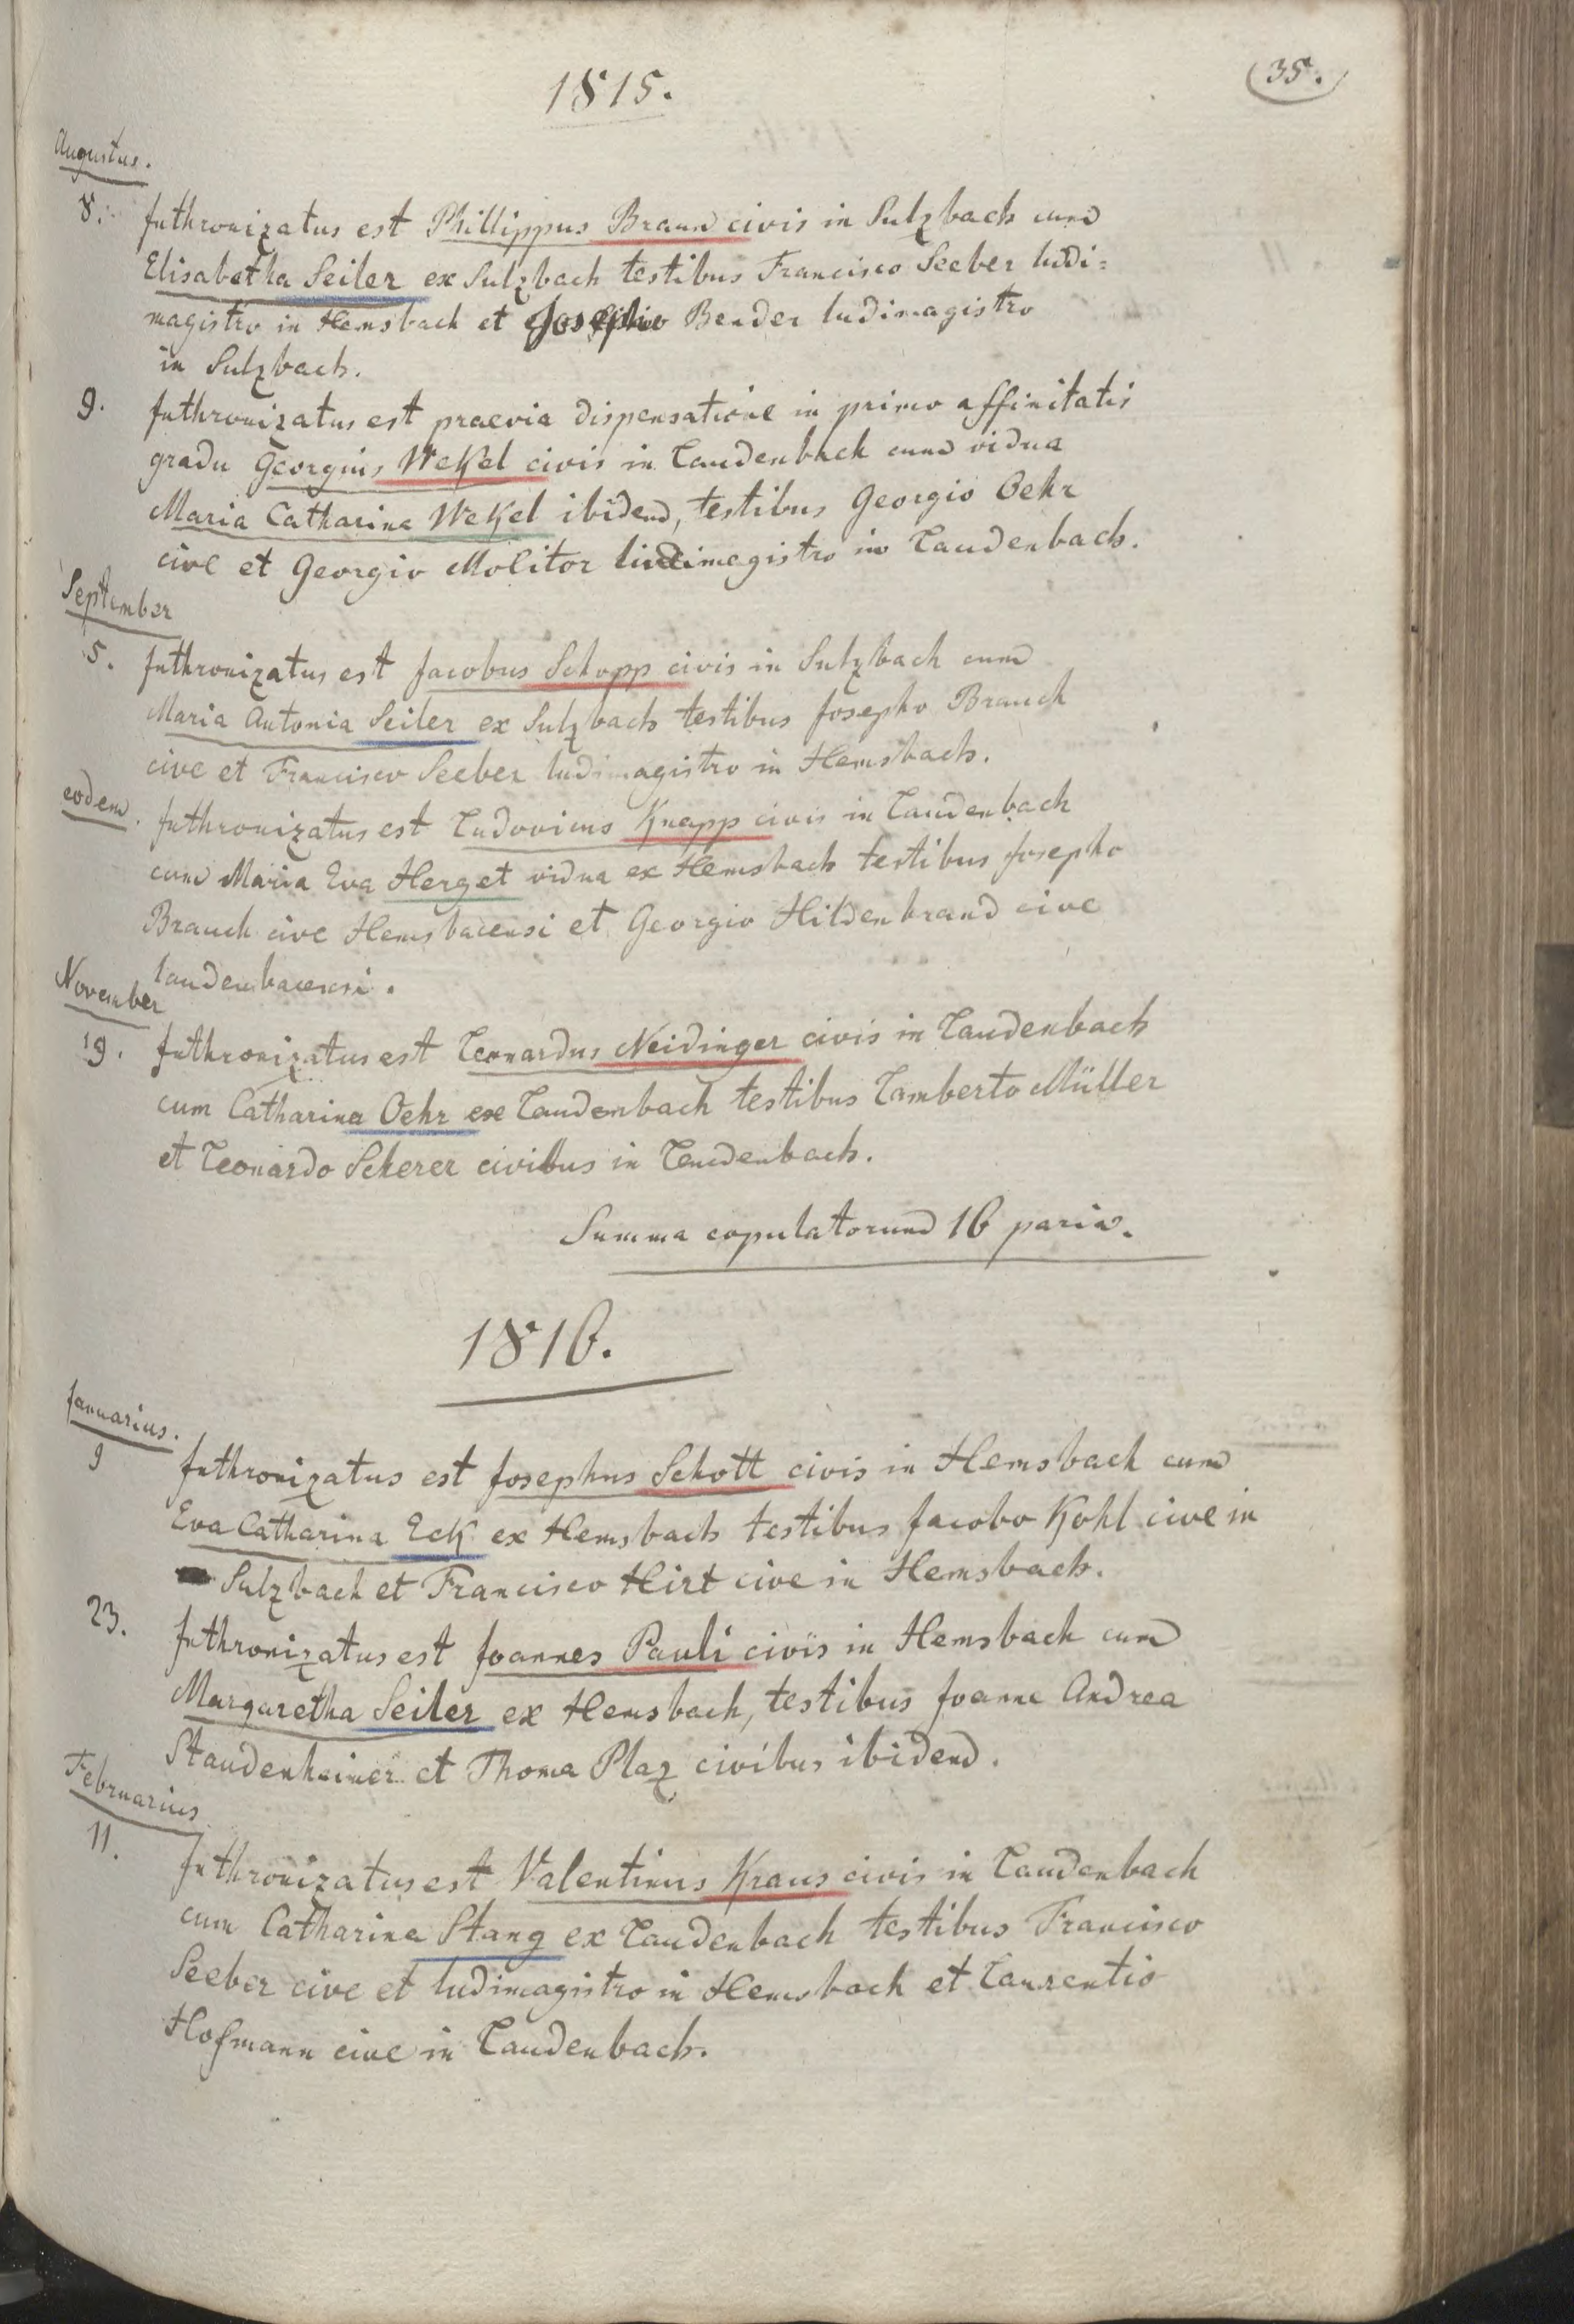 35.
1815.
Augustus.
8. Inthronizatus est Phillippus Braun civis in Sulzbach cum
Elisabetha Seiler ex Sulzbach testibus Francisco Seeber ludi=
magistro in Hemsbach et Josepho Bender ludimagistro
in Sulzbach.
9. Inthronizatus est praevia dispensatione in primo affinitatis
gradu Georgius Wekel civis in Laudenbach cum vidua
Maria Catharina Wekel ibidem, testibus Georgio Oehr
cive et Georgio Molitor ludimagistro in Laudenbach.
September
5. Inthronizatus est Jacobus Schopp civis in Sulzbach cum
Maria Antonia Seiler ex Sulzbach testibus Josepho Brauch
cive et Francisco Seeber ludimagistro in Hemsbach.
eodem. Inthronizatus est Ludovicus Knapp civis in Laudenbach
cum Maria Eva Herget vidua ex Hemsbach testibus Josepho
Brauch cive Hemsbacensi et Georgio Hildenbrand cive
laudenbacensi.
November
19. Inthronizatus est Leonardus Neidinger civis in Laudenbach
cum Catharina Oehr ex Laudenbach testibus Lamberto Müller
et Leonardo Scherer civibus in Laudenbach.
Summa copulatorum 16 paria.
1816.
Januarius.
9 Inthronizatus est Josephus Schott civis in Hemsbach cum
Eva Catharina Eck ex Hemsbach testibus Jacobo Kohl cive in
Sulzbach et Francisco Hirt cive in Hemsbach.
23. Inthronizatus est Joannes Pauli civis in Hemsbach cum
Margaretha Seiler ex Hemsbach, testibus Joanne Andrea
Staudenheimer et Thoma Plaz civibus ibidem.
Februarius
11. Inthronizatus est Valentinus Kraus civis in Laudenbach
cum Catharina Stang ex Laudenbach testibus Francisco
Seeber cive et ludimagistro in Hemsbach et Laurentio
Hofmann cive in Laudenbach.